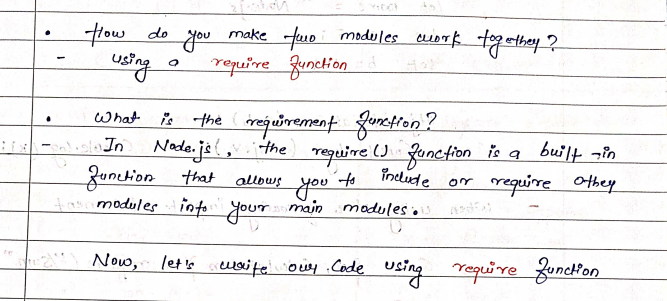 • How do you make two modules work together?
- using a require function
• What is the requirement function?
- In Node.js, the require() function is a built-in
function that allows you to include or require other
modules into your main modules.
Now, let's write our Code using require function